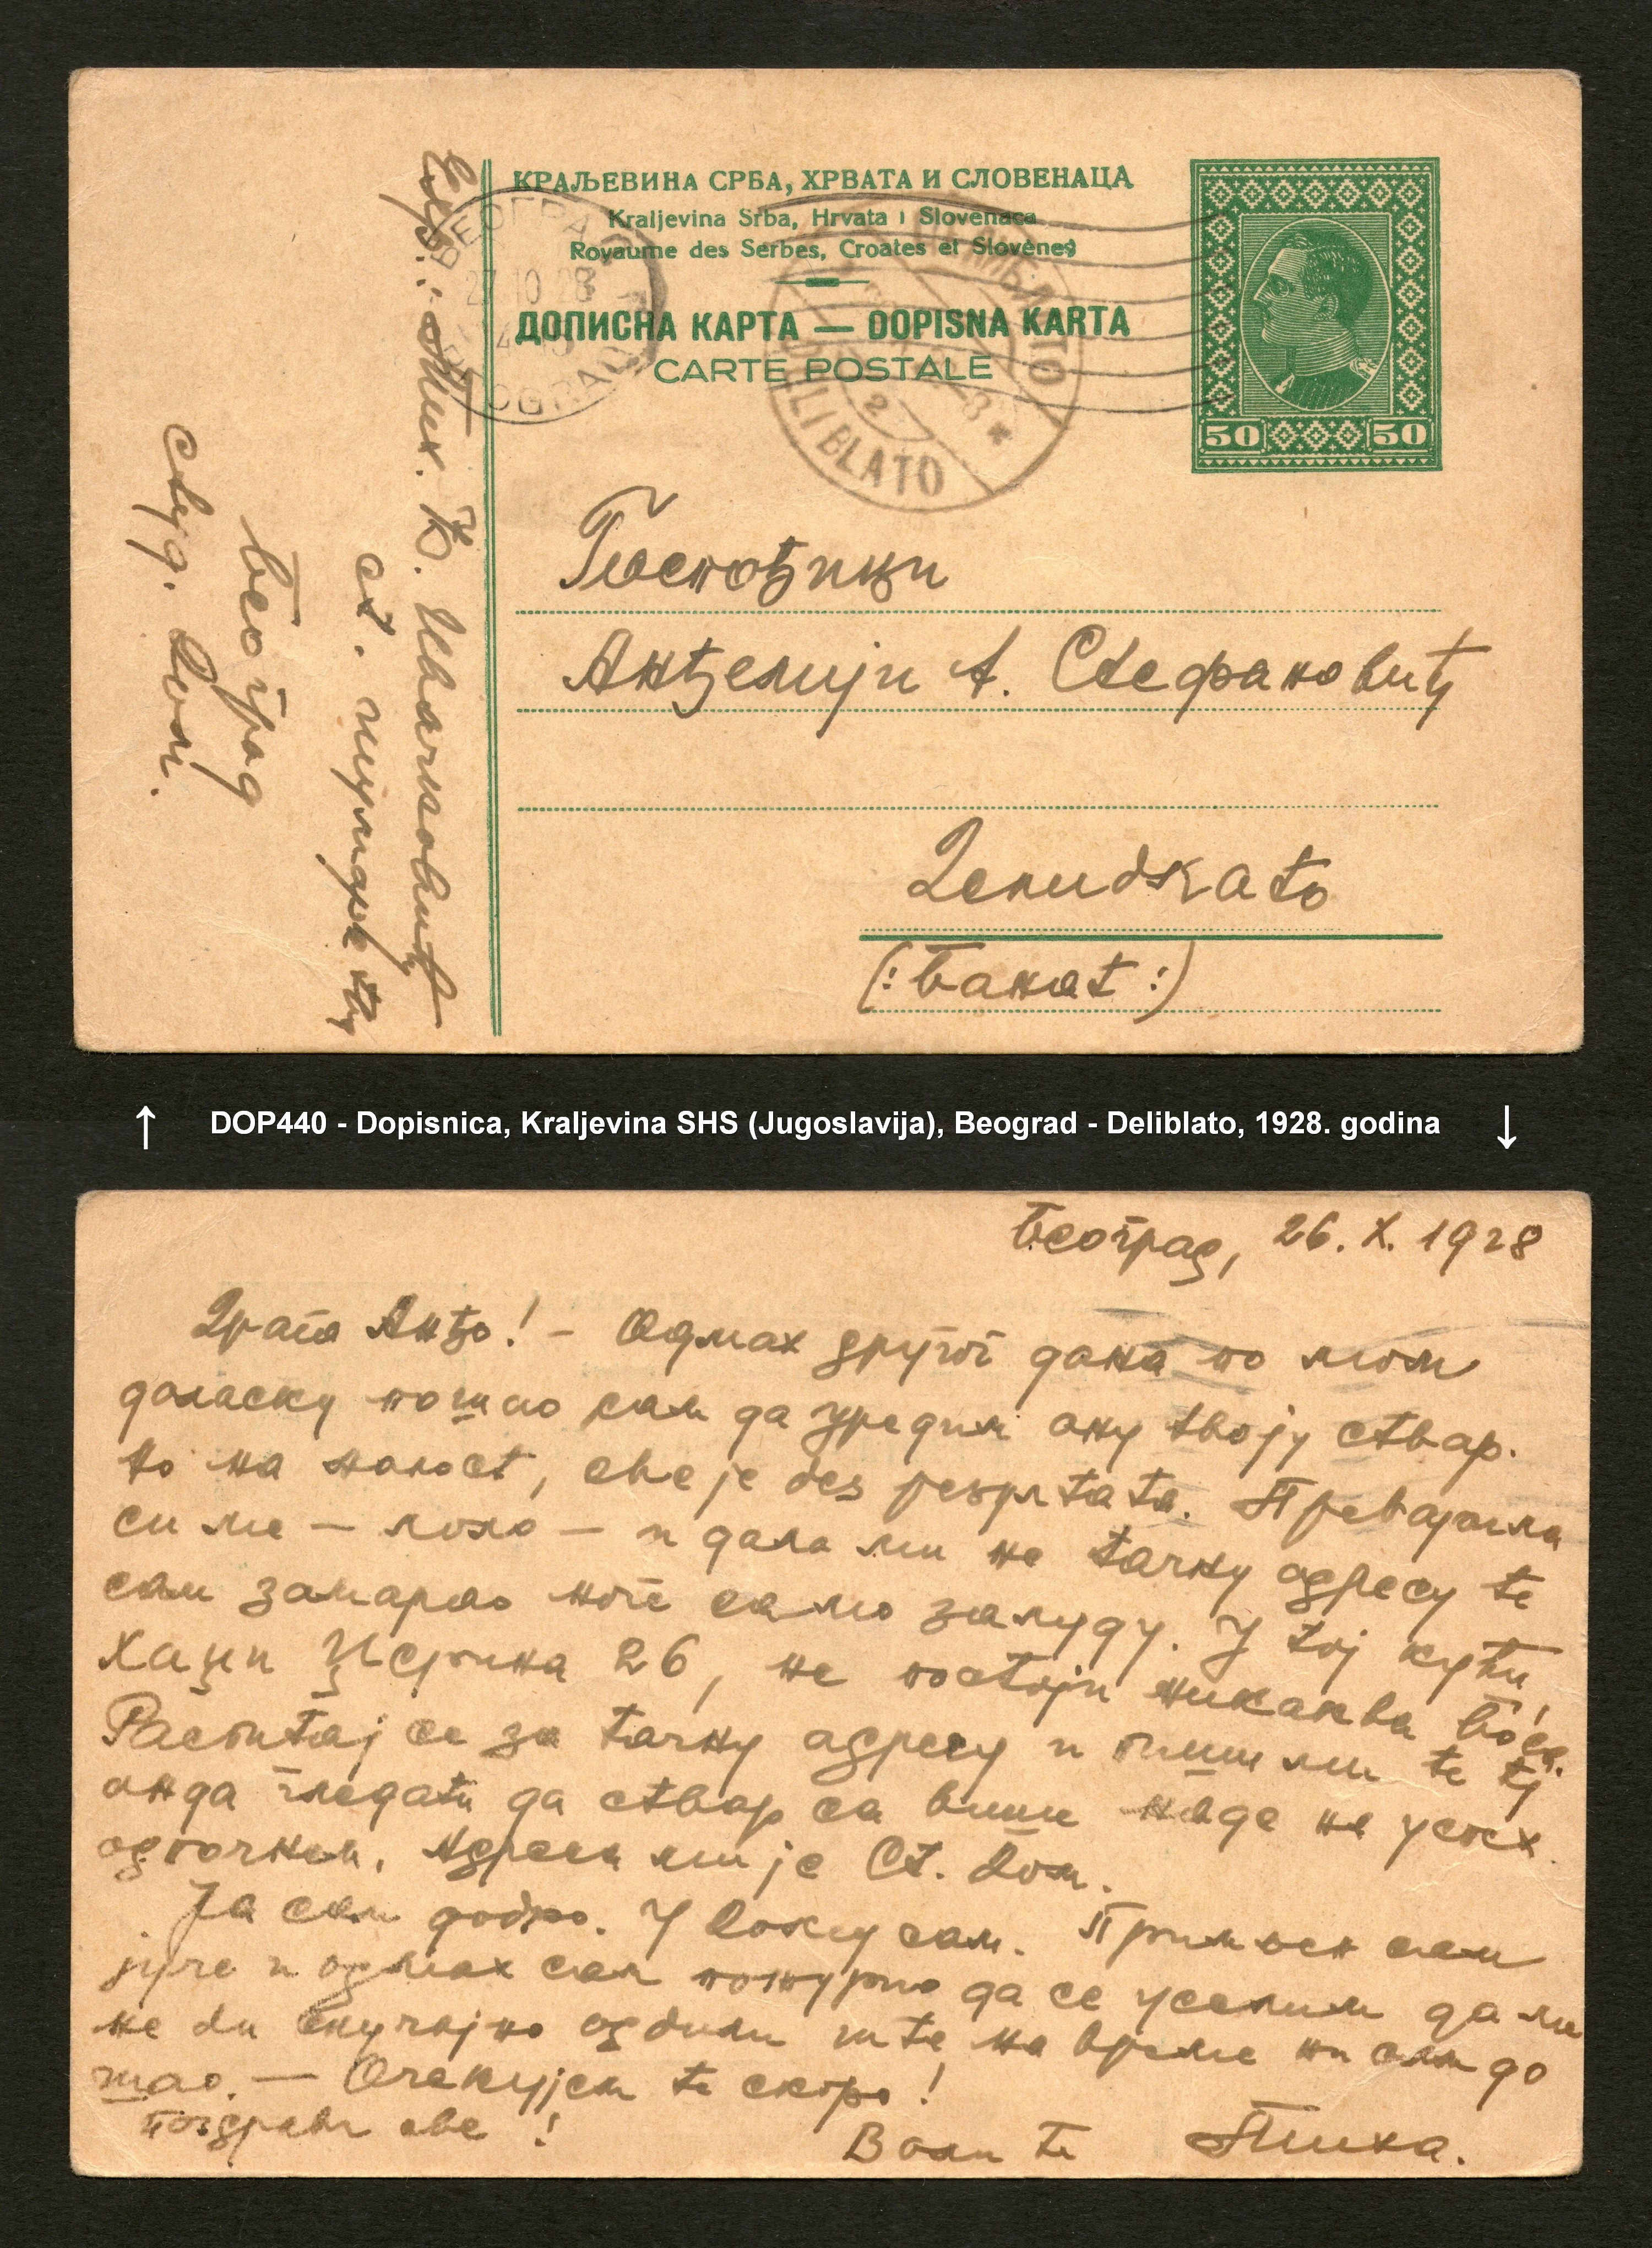 КРАЉЕВИНА СРБА, ХРВАТА И СЛОВЕНАЦА
Kraljevina Srba, Hrvata i Slovenaca
Royaume des Serbes, Croates et Slovènes
ДОПИСНА КАРТА — DOPISNA KARTA
CARTE POSTALE
50 50
БЕОГРАД
27 10 28
BEOGRAD
DELIBLATO
Госпођици
Анђелији А. Стефановић
Делиблато
(: Банат :)
Мих. Ивачковић
Београд
Студ. Дом.
DOP440 - Dopisnica, Kraljevina SHS (Jugoslavija), Beograd - Deliblato, 1928. godina
Београд, 26. X. 1928
Драга Анђо! – Одмах другог дана по мом
доласку пошао сам да уредим ону твоју ствар.
Но на жалост, све је без резултата. Преварила
си ме – – и дала ми не тачну адресу те
сам само залуду. У тој кући
Хаџи 26, не постоји никаква
Распитај се за тачну адресу и пиши ми те ћу
онда гледати да ствар са више наде на успех
отпочнем. Адреса ми је Ст. Дом.
Ја сам добро. У Дому сам. Примљен сам
јуче и одмах сам пожурио да се уселим да ме
не би случајно одбили што на време нисам до
шао. — Очекујем те скоро!
Поздрави све!
Воли те